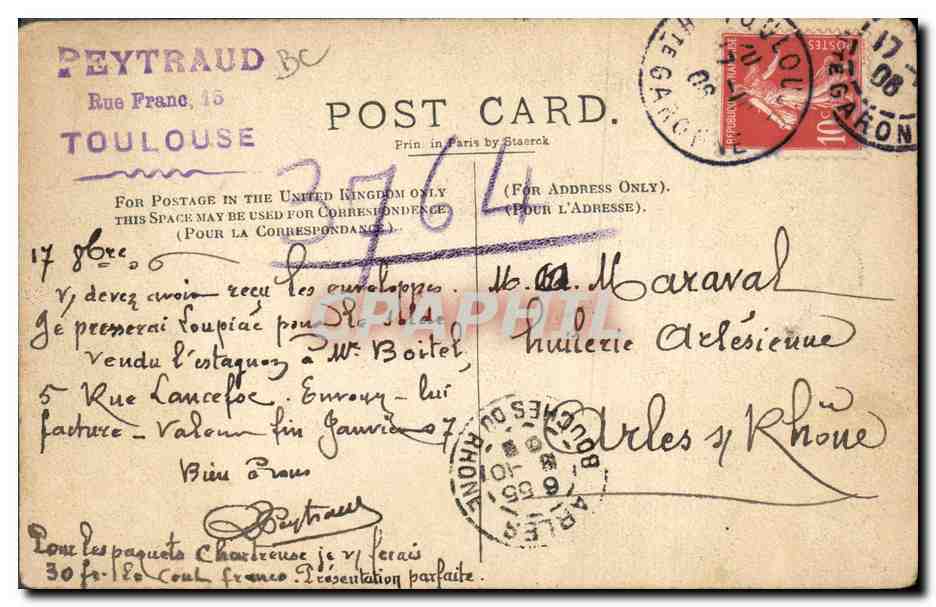 PEYTRAUD
Rue Franc, 15
TOULOUSE
BC
POST CARD.
Prin. in Paris by Staerck
FOR POSTAGE IN THE UNITED KINGDOM ONLY
THIS SPACE MAY BE USED FOR CORRESPONDENCE
(POUR LA CORRESPONDANCE).
(FOR ADDRESS ONLY).
(POUR L'ADRESSE).
3764
RÉPUBLIQUE FRANÇAISE
POSTES
10c
TOULOUSE
HTE GARONNE
17
06
TE GARON
17 8bre 06
V/ devez avoir reçu les enveloppes.
Je presserai Loupiac pour le solde
Vendu l'estagnon à Mr. Boitel,
5 Rue Lancefoc. Envoyer lui
facture - Valeur fin Janvier 07
Bien à vous
Peytraud
Pour les paquets Chartreuse je v/ ferais
30 fr. le cent franco. Présentation parfaite.
M. Maraval
huilerie Arlésienne
Arles s/ Rhône
ARLES
6 55
BOUCHES DU RHONE
CPAPHIL